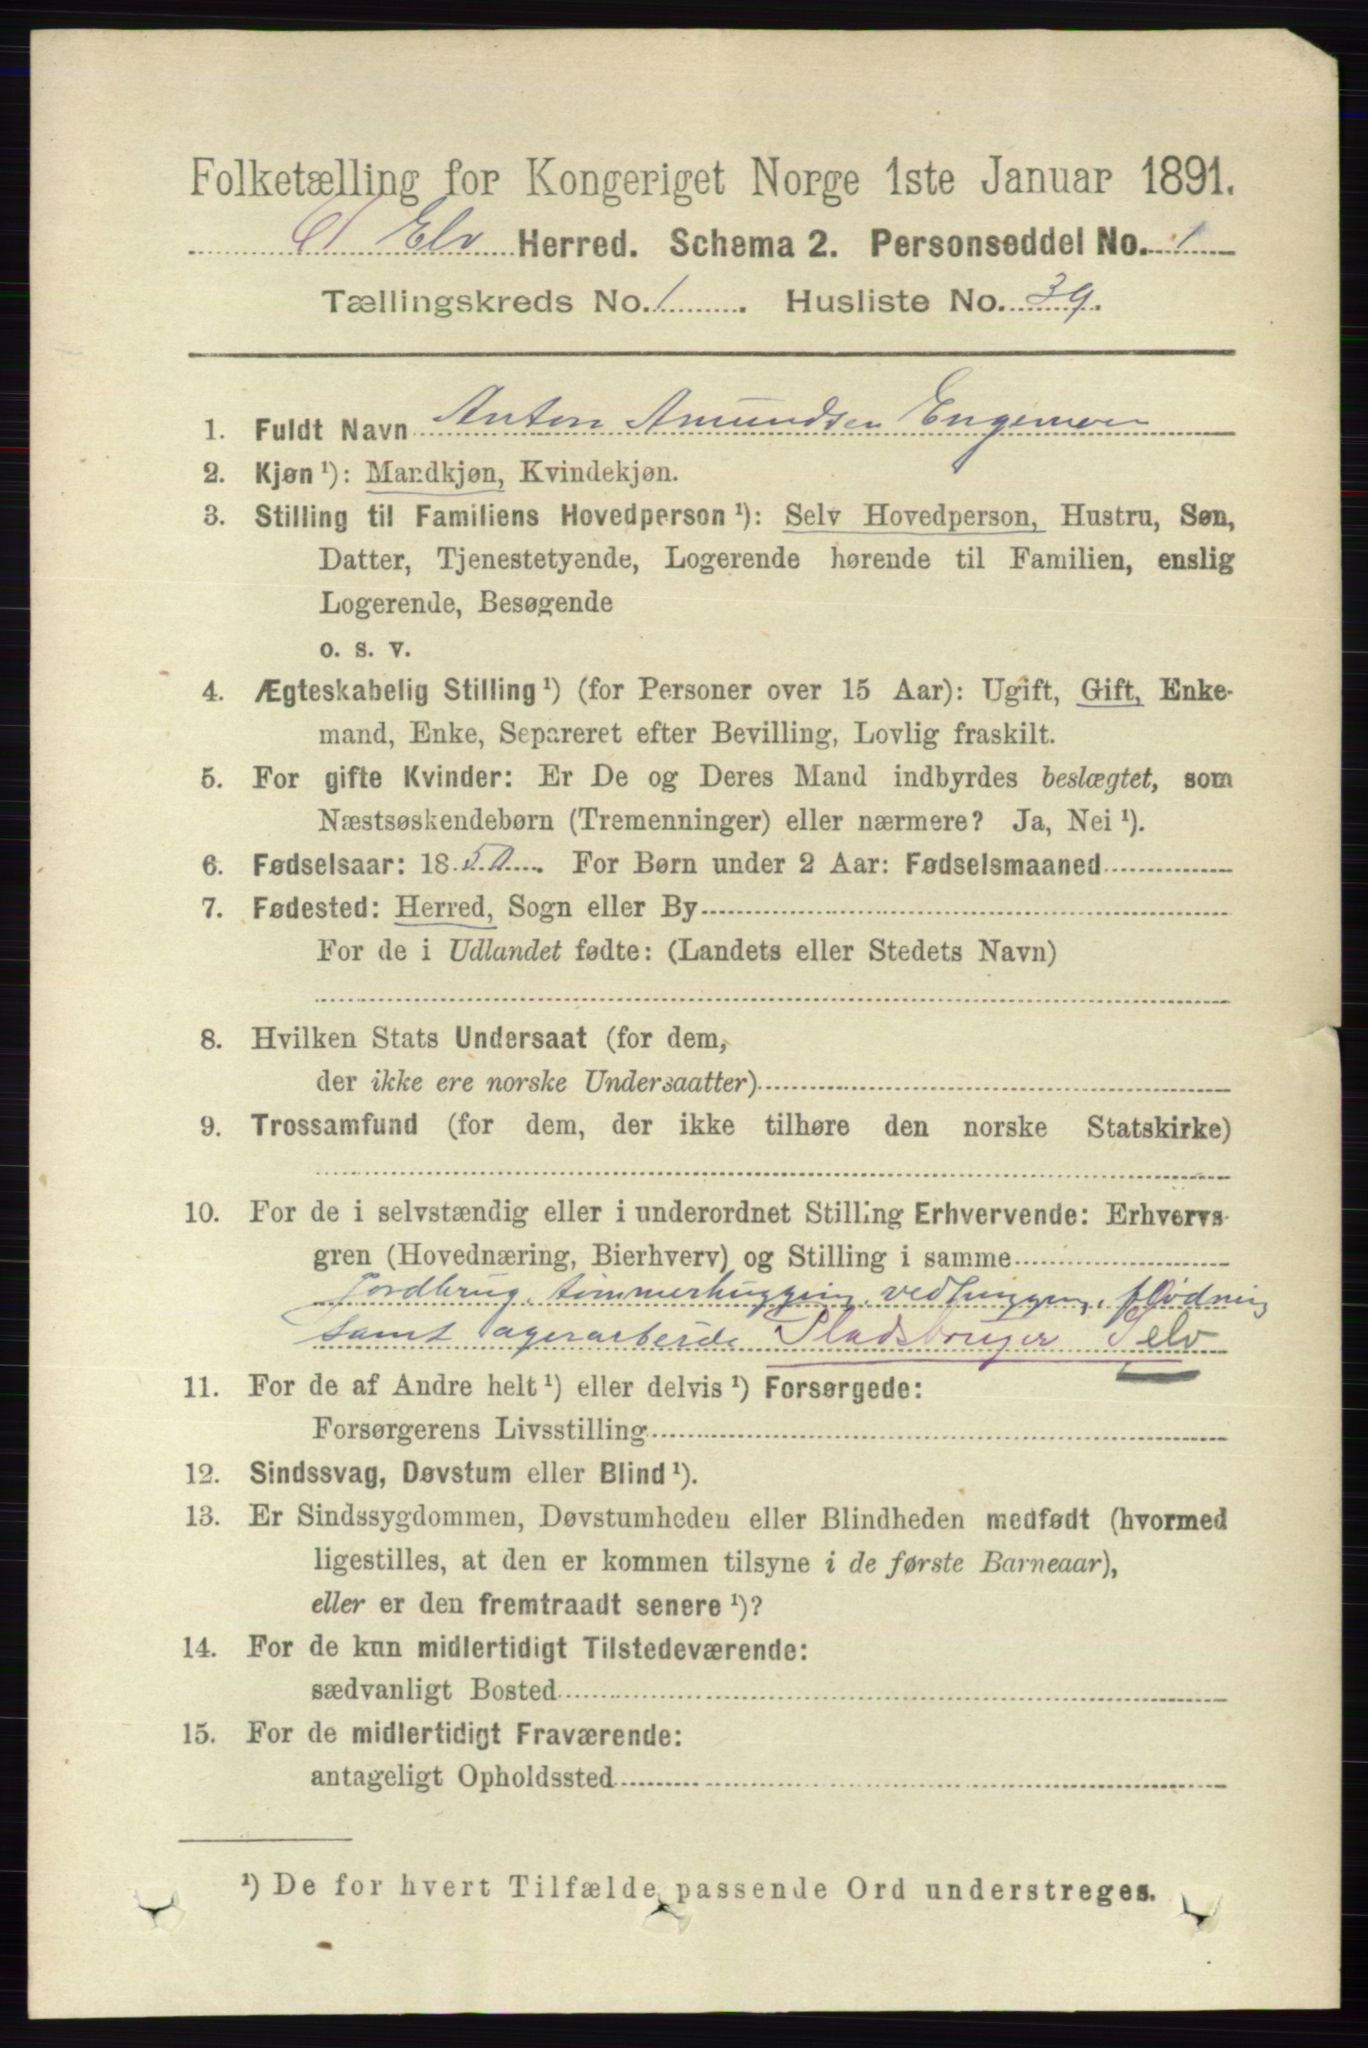 Folketælling for Kongeriget Norge 1ste Januar 1891.
St Elv Herred. Schema 2. Personseddel No. 1
Tællingskreds No. 1. Husliste No. 39.
1. Fuldt Navn Anton Amundsen Engemoen
2. Kjøn ¹): Mandkjøn, Kvindekjøn.
3. Stilling til Familiens Hovedperson ¹): Selv Hovedperson, Hustru, Søn,
Datter, Tjenestetyende, Logerende hørende til Familien, enslig
Logerende, Besøgende
o. s. v.
4. Ægteskabelig Stilling ¹) (for Personer over 15 Aar): Ugift, Gift, Enke-
mand, Enke, Separeret efter Bevilling, Lovlig fraskilt.
5. For gifte Kvinder: Er De og Deres Mand indbyrdes beslægtet, som
Næstsøskendebørn (Tremenninger) eller nærmere? Ja, Nei ¹).
6. Fødselsaar: 1850. For Børn under 2 Aar: Fødselsmaaned
7. Fødested: Herred, Sogn eller By
For de i Udlandet fødte: (Landets eller Stedets Navn)
8. Hvilken Stats Undersaat (for dem,
der ikke ere norske Undersaatter)
9. Trossamfund (for dem, der ikke tilhøre den norske Statskirke)
10. For de i selvstændig eller i underordnet Stilling Erhvervende: Erhvervs-
gren (Hovednæring, Bierhverv) og Stilling i samme
Jordbrug, tømmerhugging, vedhugging, flødning
samt agerarbeide Pladsbruger Selv
11. For de af Andre helt ¹) eller delvis ¹) Forsørgede:
Forsørgerens Livsstilling
12. Sindssvag, Døvstum eller Blind ¹).
13. Er Sindssygdommen, Døvstumheden eller Blindheden medfødt (hvormed
ligestilles, at den er kommen tilsyne i de første Barneaar),
eller er den fremtraadt senere ¹)?
14. For de kun midlertidigt Tilstedeværende:
sædvanligt Bosted
15. For de midlertidigt Fraværende:
antageligt Opholdssted
¹) De for hvert Tilfælde passende Ord understreges.